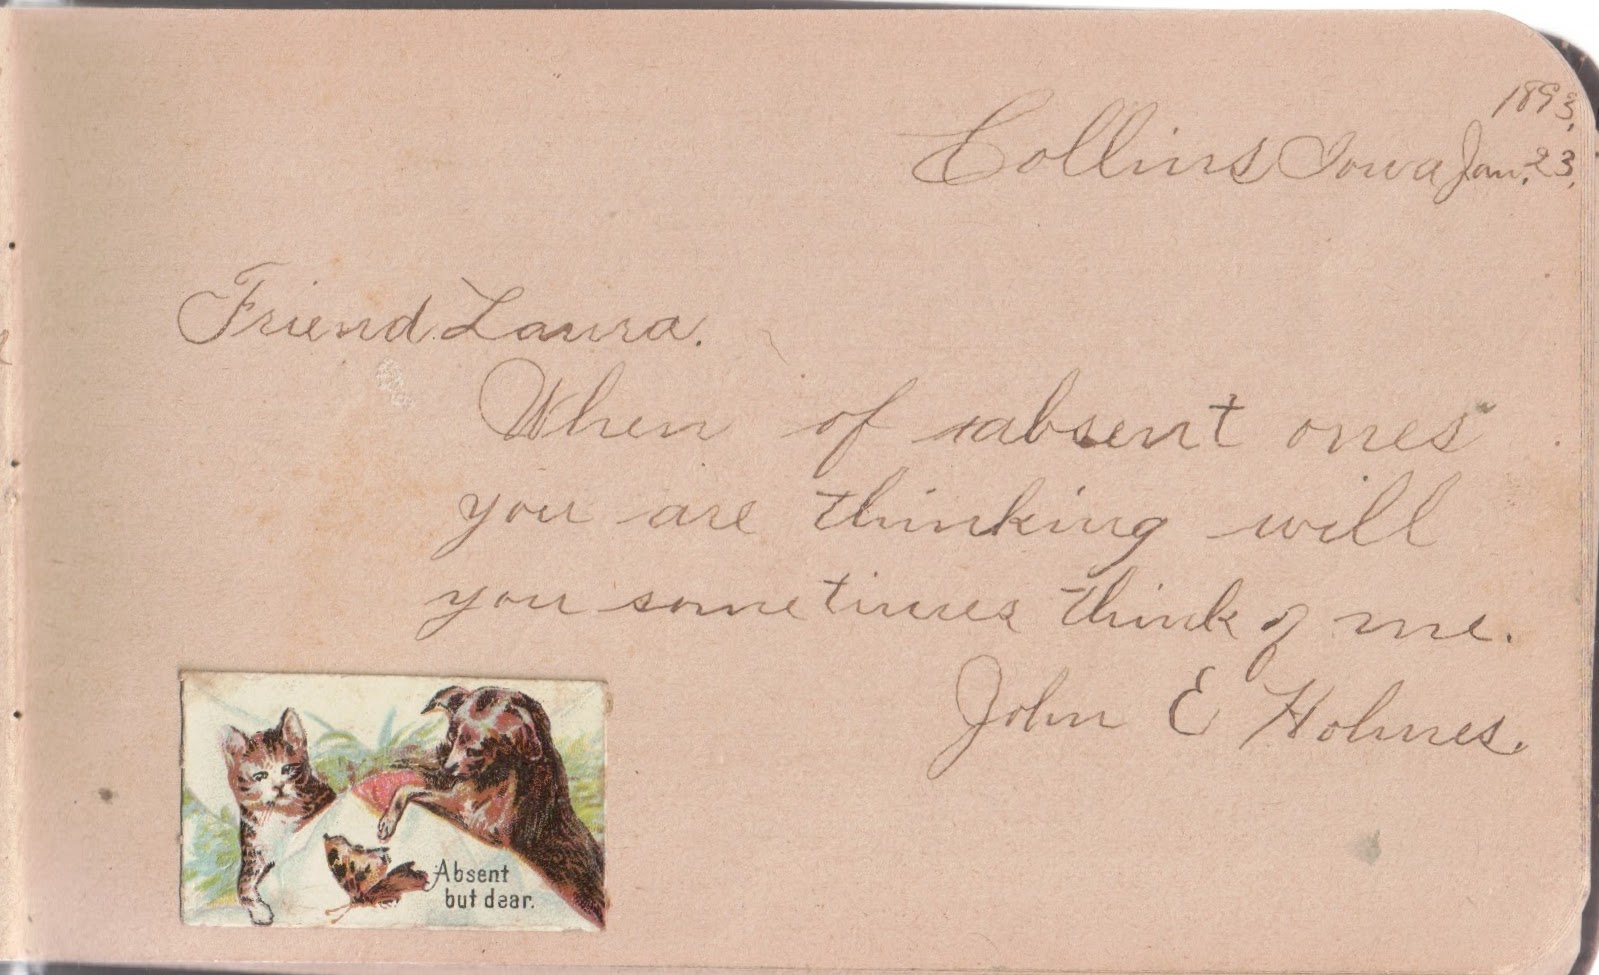 1893,
Collins Iowa Jan. 23,
Friend Laura.
When of absent ones
you are thinking will
you sometimes think of me.
John E Holmes.
Absent
but dear.